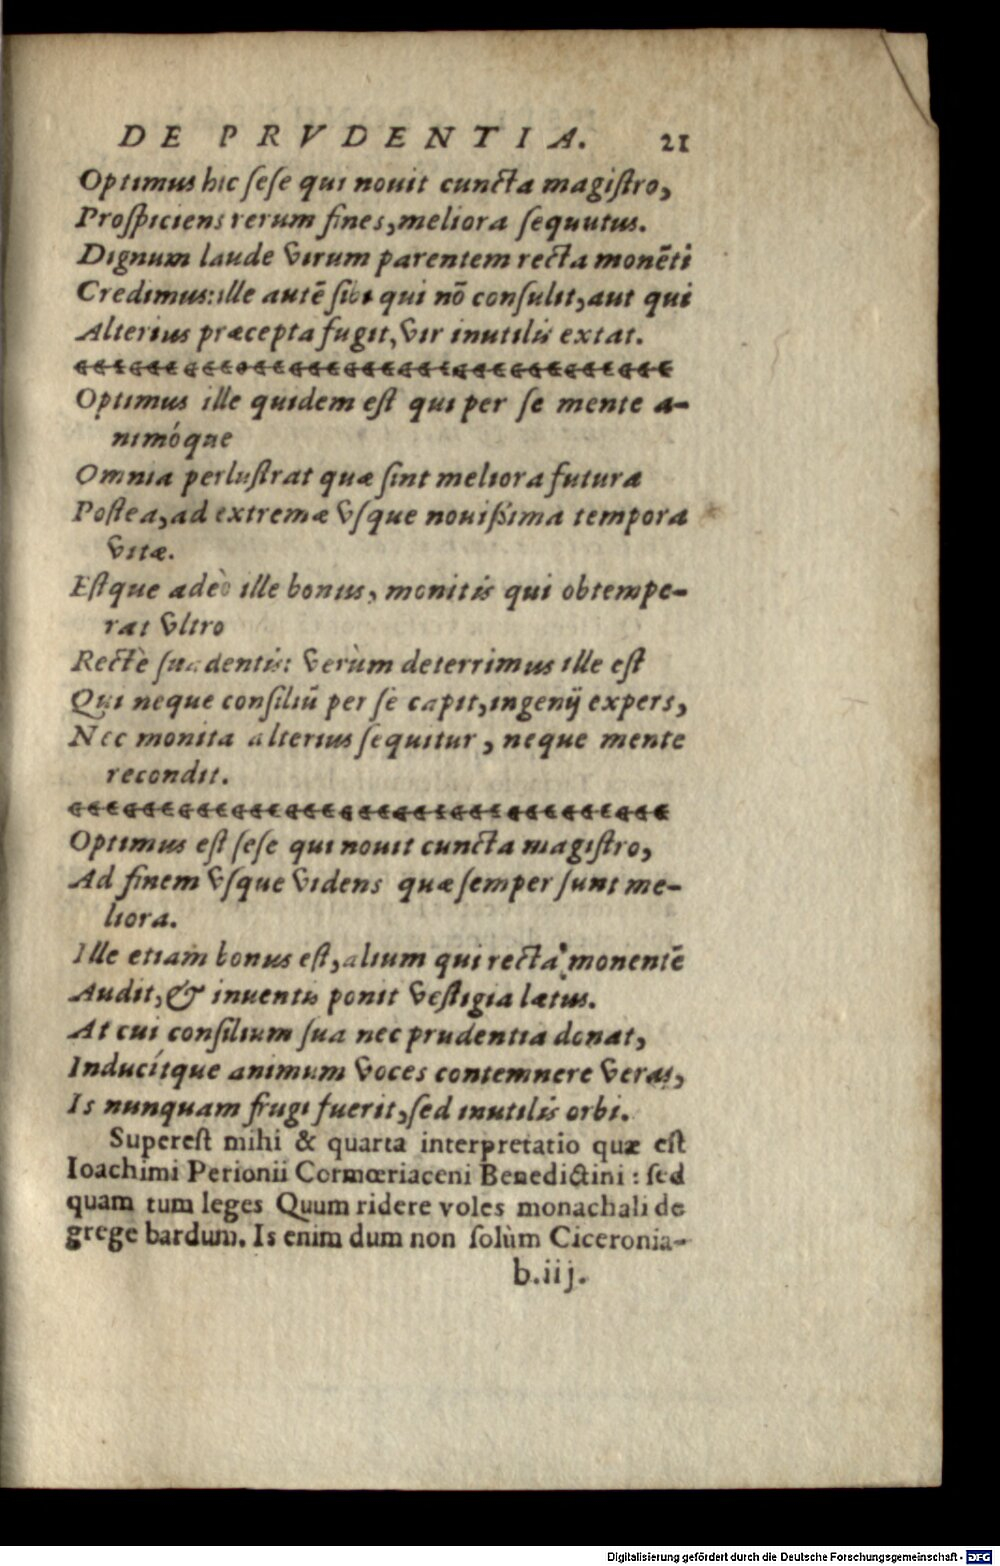 DE PRVDENTIA. 21
Optimus hic ſeſe qui nouit cuncta magiſtro,
Proſpiciens rerum fines, meliora ſequutus.
Dignum laude virum parentem recta monēti
Credimus: ille autē ſibi qui nō conſulit, aut qui
Alterius præcepta fugit, vir inutilis extat.
Optimus ille quidem eſt qui per ſe mente a-
nimóque
Omnia perluſtrat quæ ſint meliora futura
Poſtea, ad extremæ vſque nouißima tempora
vitæ.
Eſtque adeò ille bonus, monitis qui obtempe-
rat vltro
Rectè ſuadentis: verùm deterrimus ille eſt
Qui neque conſiliū per ſe capit, ingenij expers,
Nec monita alterius ſequitur, neque mente
recondit.
Optimus eſt ſeſe qui nouit cuncta magiſtro,
Ad finem vſque videns quæ ſemper ſunt me-
liora.
Ille etiam bonus eſt, alium qui recta monentē
Audit, & inuentis ponit veſtigia lætus.
At cui conſilium ſua nec prudentia donat,
Inducítque animum voces contemnere veras,
Is nunquam frugi fuerit, ſed inutilis orbi.
Supereſt mihi & quarta interpretatio quæ eſt
Ioachimi Perionii Cormœriaceni Benedictini : ſed
quam tum leges Quum ridere voles monachali de
grege bardum. Is enim dum non ſolùm Ciceronia-
b.iij.
Digitalisierung gefördert durch die Deutsche Forschungsgemeinschaft - DFG